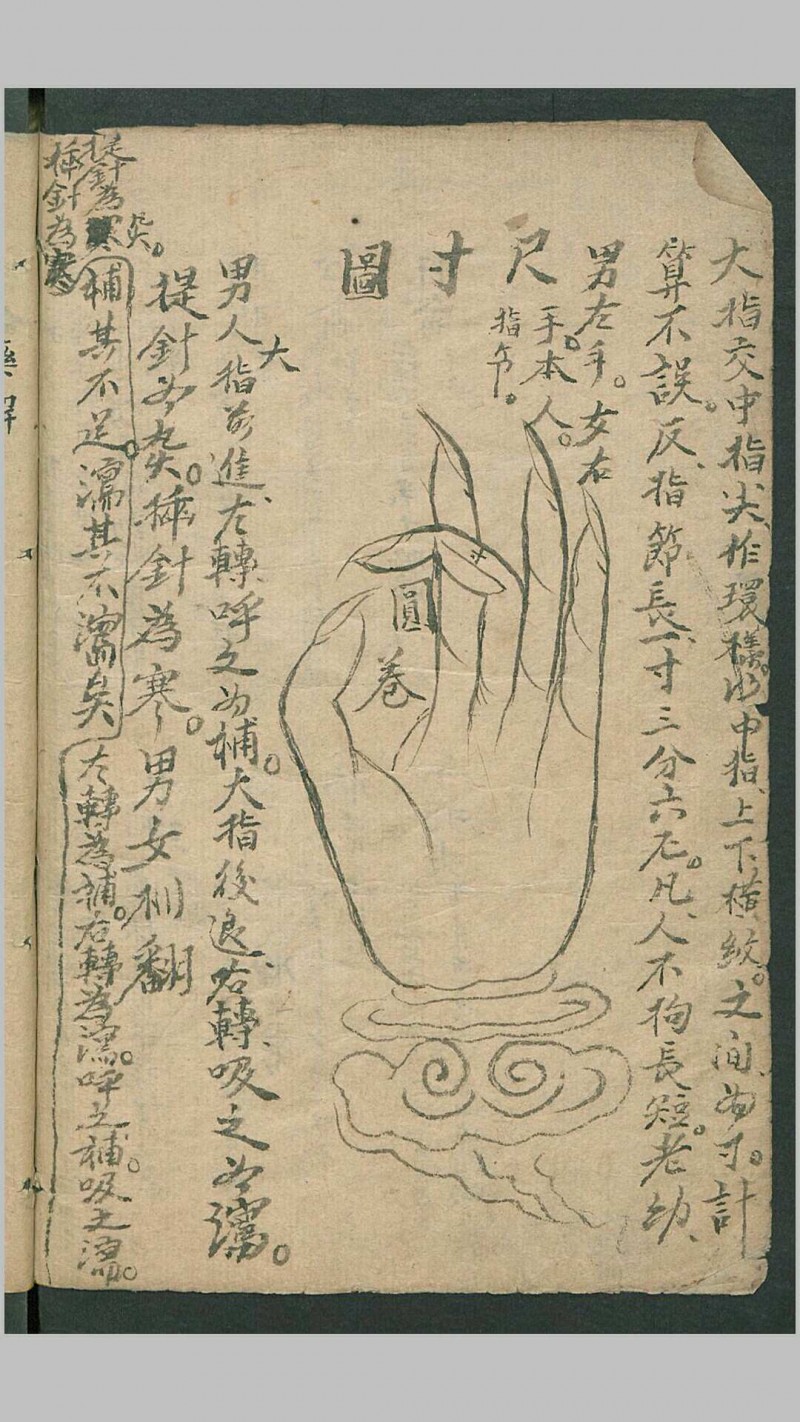 大指交中指尖作環樣以中指上下横紋。之间为寸。計
算不誤。反指節長一寸三分六厘。凡人不拘長短。老幼、
男左手。女右
手。本人。
指节。
尺寸圖
圓卷
大
男人指前進、左轉、呼之为補。大指後退、右轉、吸之为瀉。
提針为熱。插針為寒。男女相翻
補其不足。瀉其不瀉矣
左轉為補。右轉為瀉。呼之補。吸之瀉。
矣。
提針為
插針為寒